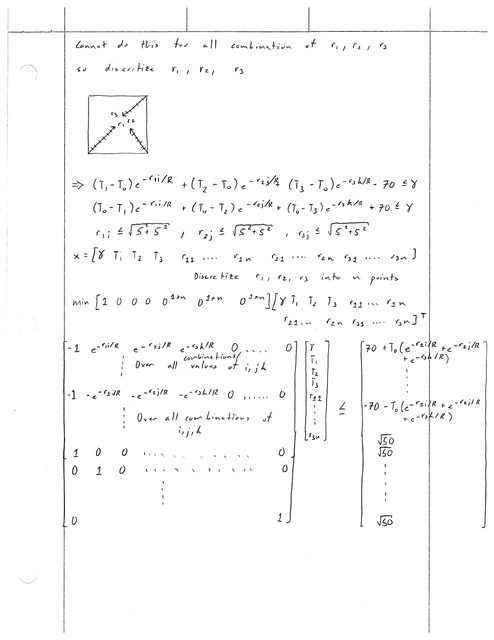 Cannot do this for all combination of r₁, r₂, r₃
so discritize r₁, r₂, r₃
r₃
r₁ r₂
⇒ (T₁-T₀)e^{-r₁i/R} + (T₂-T₀)e^{-r₂j/R} (T₃-T₀)e^{-r₃k/R} - 70 ≤ γ
(T₀-T₁)e^{-r₁i/R} + (T₀-T₂)e^{-r₂j/R} + (T₀-T₃)e^{-r₃k/R} + 70 ≤ γ
r₁i ≤ √(5²+5²) , r₂j ≤ √(5²+5²) , r₃j ≤ √(5²+5²)
x = [γ T₁ T₂ T₃ r₁₁ .... r₁n r₂₁ .... r₂n r₃₁ .... r₃n]
Discretize r₁, r₂, r₃ into n points
min [1 0 0 0 0^{1×n} 0^{1×n} 0^{1×n}][γ T₁ T₂ T₃ r₁₁ ... r₁n
r₂₁... r₂n r₃₁ .... r₃n]ᵀ
-1 e^{-r₁i/R} e^{-r₂j/R} e^{-r₃k/R} 0 ..... 0
combinations
Over all values of i,j,k
-1 -e^{-r₁i/R} -e^{-r₂j/R} -e^{-r₃k/R} 0 ...... 0
Over all combinations of
i,j,k
1 0 0 ......... 0
0 1 0 ......... 0
0 1
γ
T₁
T₂
T₃
r₁₁
r₃n
≤
70 + T₀(e^{-r₁i/R} + e^{-r₂j/R}
+ e^{-r₃k/R})
-70 - T₀(e^{-r₁i/R} + e^{-r₂j/R}
+ e^{-r₃k/R})
√50
√50
√50